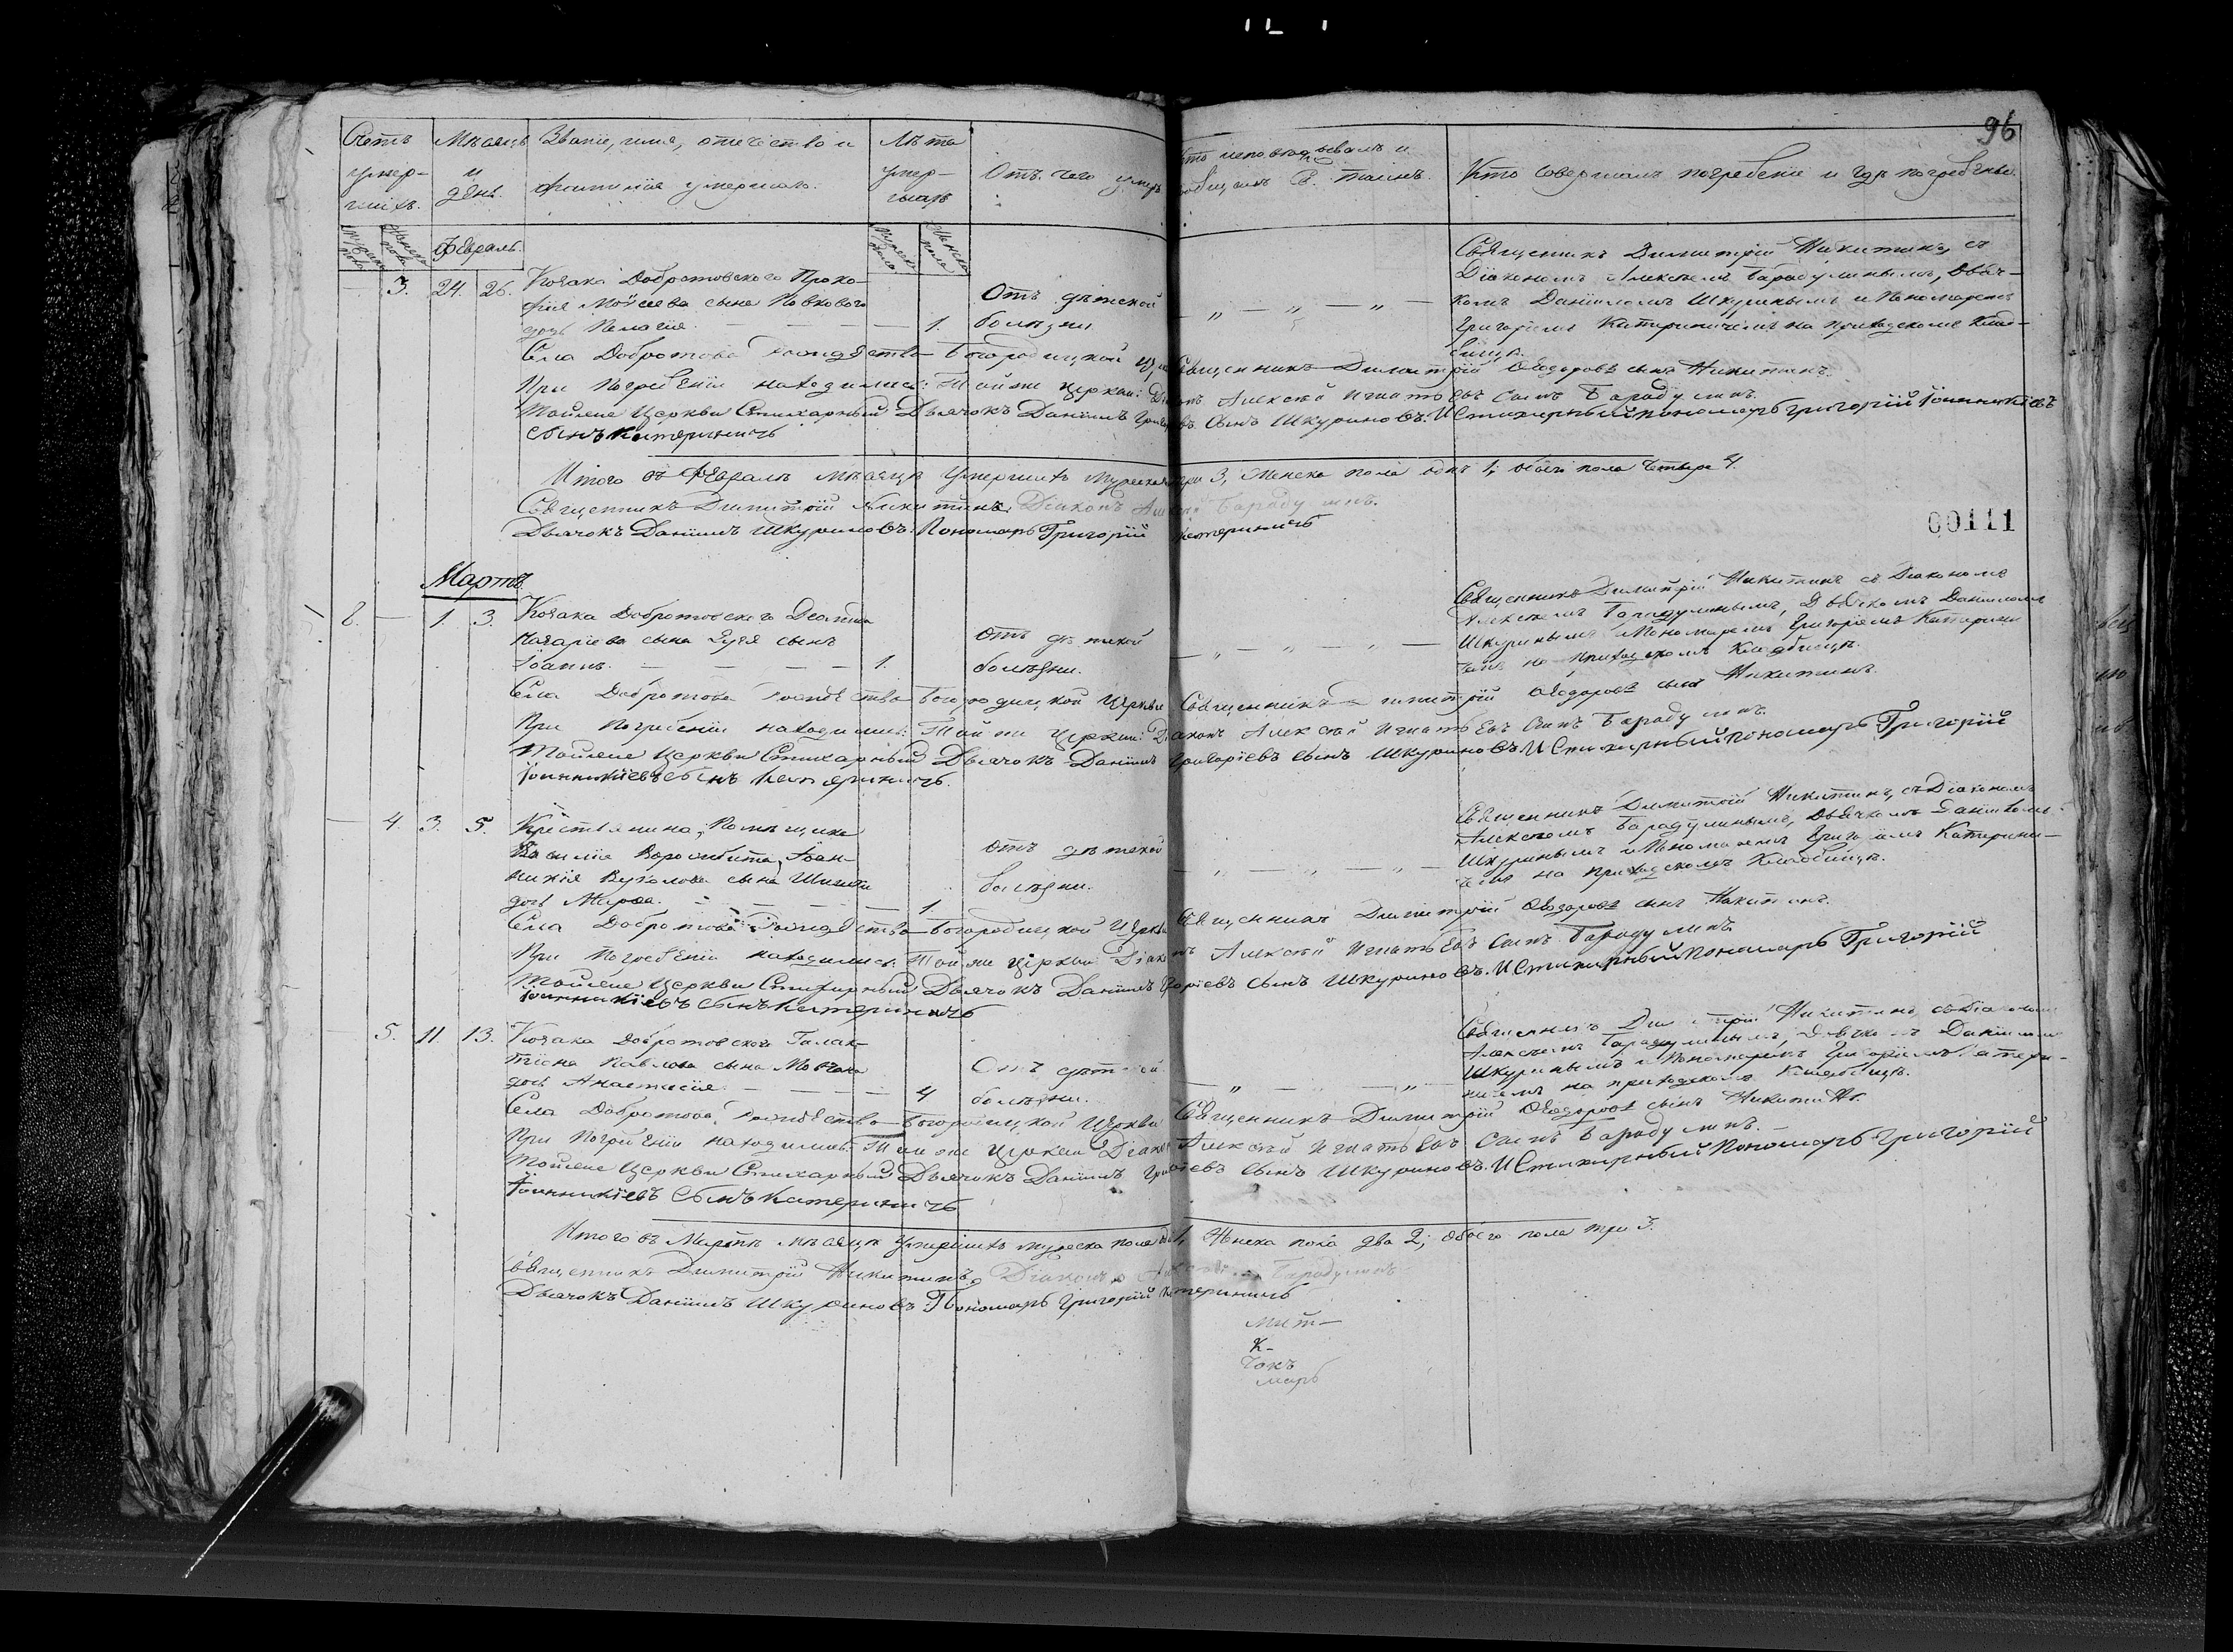 96
Счетъ умер-шихъ.
Мѣсяцъ и день.
Званіе, имя, отечество и фамилія умершаго.
Лѣта умер-шаго
Отъ чего умеръ
исповѣдывалъ и
Св. Таинъ.
Кто совершалъ погребеніе и гдѣ погребены.
Февраль.
3. 24. 26. Козака Добротовского Проко-
фія Мойсеева сына
дочь Пелагія. — — — 1.
Отъ дѣтской
болѣзни.
— „ — „ — „ —
Священникъ Димитрій Никитинъ, съ
Діакономъ Алексѣемъ Барадулинымъ, Дьяч-
комъ Даніиломъ Шкуринымъ и Пономаремъ
Григоріемъ на приходскомъ Клад-
бищѣ.
Села Добротова Рождество-Богородицкой Священникъ Димитрій Ѳеодоровъ сынъ Никитинъ.
При погребеніи находились: Той же церкви: Діаконъ Алексѣй Игнатьевъ сынъ Барадулинъ.
Тойже Церкви Стихарный Дьячокъ Даніилъ сынъ Шкуриновъ. И Стихирный пономарь Григорій Іоанникіевъ
сынъ Катериничъ
Итого въ Февралѣ мѣсяцѣ умершихъ мужеска три 3, женска пола одна 1, обоего пола четыре 4.
Священникъ Димитрій Никитинъ. Діаконъ Барадулинъ.
Дьячокъ Даніилъ Шкуриновъ. Пономарь Григорій Катериничъ
00111
Мартъ
8. — 1. 3. Козака Добротовского
сына сынъ
Іоаннъ. — — — — 1.
Отъ дѣтской
болѣзни.
— „ — „ — „ —
Священникъ Димитрій Никитинъ съ Діакономъ
Алексѣемъ Барадулинымъ, Дьячкомъ Даніиломъ
Шкуринымъ и Пономаремъ Григоріемъ
на приходскомъ Кладбищѣ.
Села Добротова Рождество-Богородицкой Церкви Священникъ Димитрій Ѳеодоровъ сынъ Никитинъ.
При погребеніи находились: Той же церкви: Діаконъ Алексѣй Игнатьевъ сынъ Барадулинъ.
Тойже Церкви Стихарный Дьячокъ Даніилъ Григоріевъ сынъ Шкуриновъ. И Стихирный пономарь Григорій
Іоанникіевъ сынъ Катериничъ.
— 4. 3. 5. Крестьянина, Помѣщика
Василія Іоан-
никія сына
дочь Марѳа. — — — 1
Отъ дѣтской
болѣзни.
— „ — „ — „ —
Священникъ Димитрій Никитинъ, съ Діакономъ
Алексѣемъ Барадулинымъ, Дьячкомъ Даніиломъ
Шкуринымъ и Пономаремъ Григоріемъ Катерини-
чемъ на приходскомъ Кладбищѣ.
Села Добротова Рождество-Богородицкой Церкви Священникъ Димитрій Ѳеодоровъ сынъ Никитинъ.
При погребеніи находились: Той же церкви Діаконъ Алексѣй Игнатьевъ сынъ Барадулинъ.
Тойже Церкви Стихирный Дьячокъ Даніилъ Григоріевъ сынъ Шкуриновъ. И Стихирный Пономарь Григорій
Іоанникіевъ сынъ Катериничъ
— 5. 11. 13. Козака Добротовского Галак-
тіона Павлова сына
дочь Анастасія. — — — 4
Отъ дѣтской
болѣзни.
— „ — „ — „ —
Священникъ Димитрій Никитинъ, съ Діакономъ
Алексѣемъ Барадулинымъ, Дьячкомъ Даніиломъ
Шкуринымъ и Пономаремъ Григоріемъ Катери-
ничемъ на приходскомъ Кладбищѣ.
Села Добротова Рождество-Богородицкой Церкви Священникъ Димитрій Ѳеодоровъ сынъ Никитинъ.
При погребеніи находились: Той же церкви Діаконъ Алексѣй Игнатьевъ сынъ Барадулинъ.
Тойже Церкви Стихарный Дьячокъ Даніилъ Григоріевъ сынъ Шкуриновъ. И Стихирный Пономарь Григорій
Іоанникіевъ сынъ Катериничъ
Итого въ Мартѣ мѣсяцѣ умершихъ мужеска пола 1, женска пола два 2; обоего пола три 3.
Священникъ Димитрій Никитинъ, Діаконъ Барадулинъ
Дьячокъ Даніилъ Шкуриновъ. Пономарь Григорій Катериничъ
мит-
к-
чокъ
марь